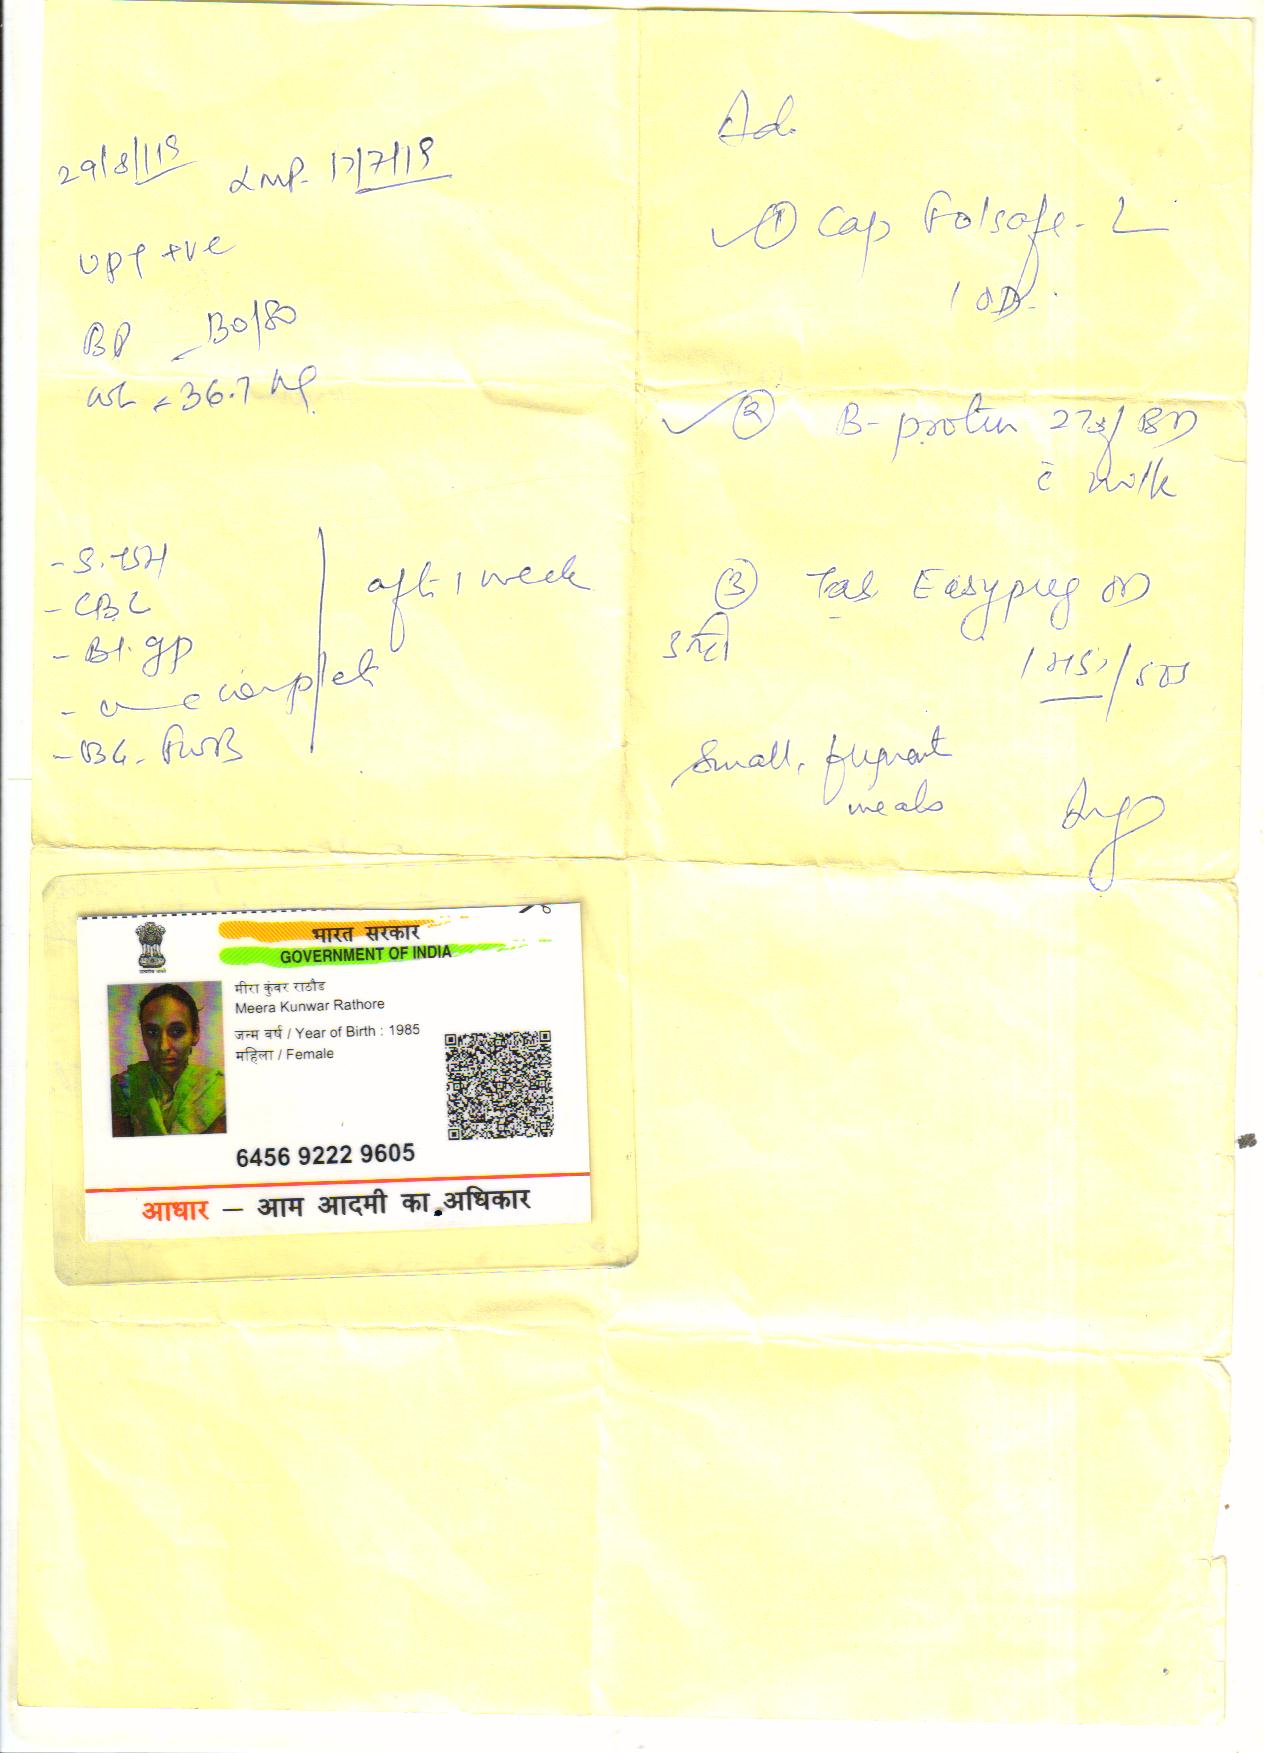 29/8/19 LMP- 17/7/19
UPT +ve
BP - 130/80
wt = 36.7 kg
- S. TSH
- CBC
- Bl. gp
- complete
after 1 week
Ad.
① Cap Folsafe - L
1 OD.
② B-protein 2 /BD
c̄ milk
③ Tab Easypreg OD
उल्टी
Small, frequent
meals
भारत सरकार
GOVERNMENT OF INDIA
मीरा कुंवर राठौड
Meera Kunwar Rathore
जन्म वर्ष / Year of Birth : 1985
महिला / Female
6456 9222 9605
आधार – आम आदमी का अधिकार